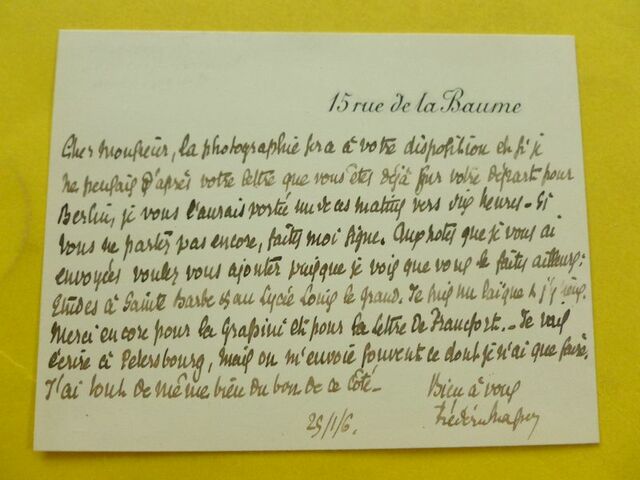 15 rue de la Baume
Cher Monsieur, la photographie sera à votre disposition et si je
ne pensais d'après votre lettre que vous êtes déjà sur votre départ pour
Berlin, je vous l'aurais portée un de ces matins vers dix heures. Si
vous ne partez pas encore, faites moi signe. Aux notes que je vous ai
envoyées voulez vous ajouter puisque je vois que vous le faites ailleurs:
Etudes à Sainte Barbe et au Lycée Louis le grand. Je suis un laïque & j'y tiens.
Merci encore pour la Grassini et pour la lettre de Francfort. Je vais
écrire à Petersbourg, mais on m'envoie souvent ce dont je n'ai que faire.
J'ai tout de même bien du bon de ce côté-
Bien à vous
Frédéric Masson
25/1/6.